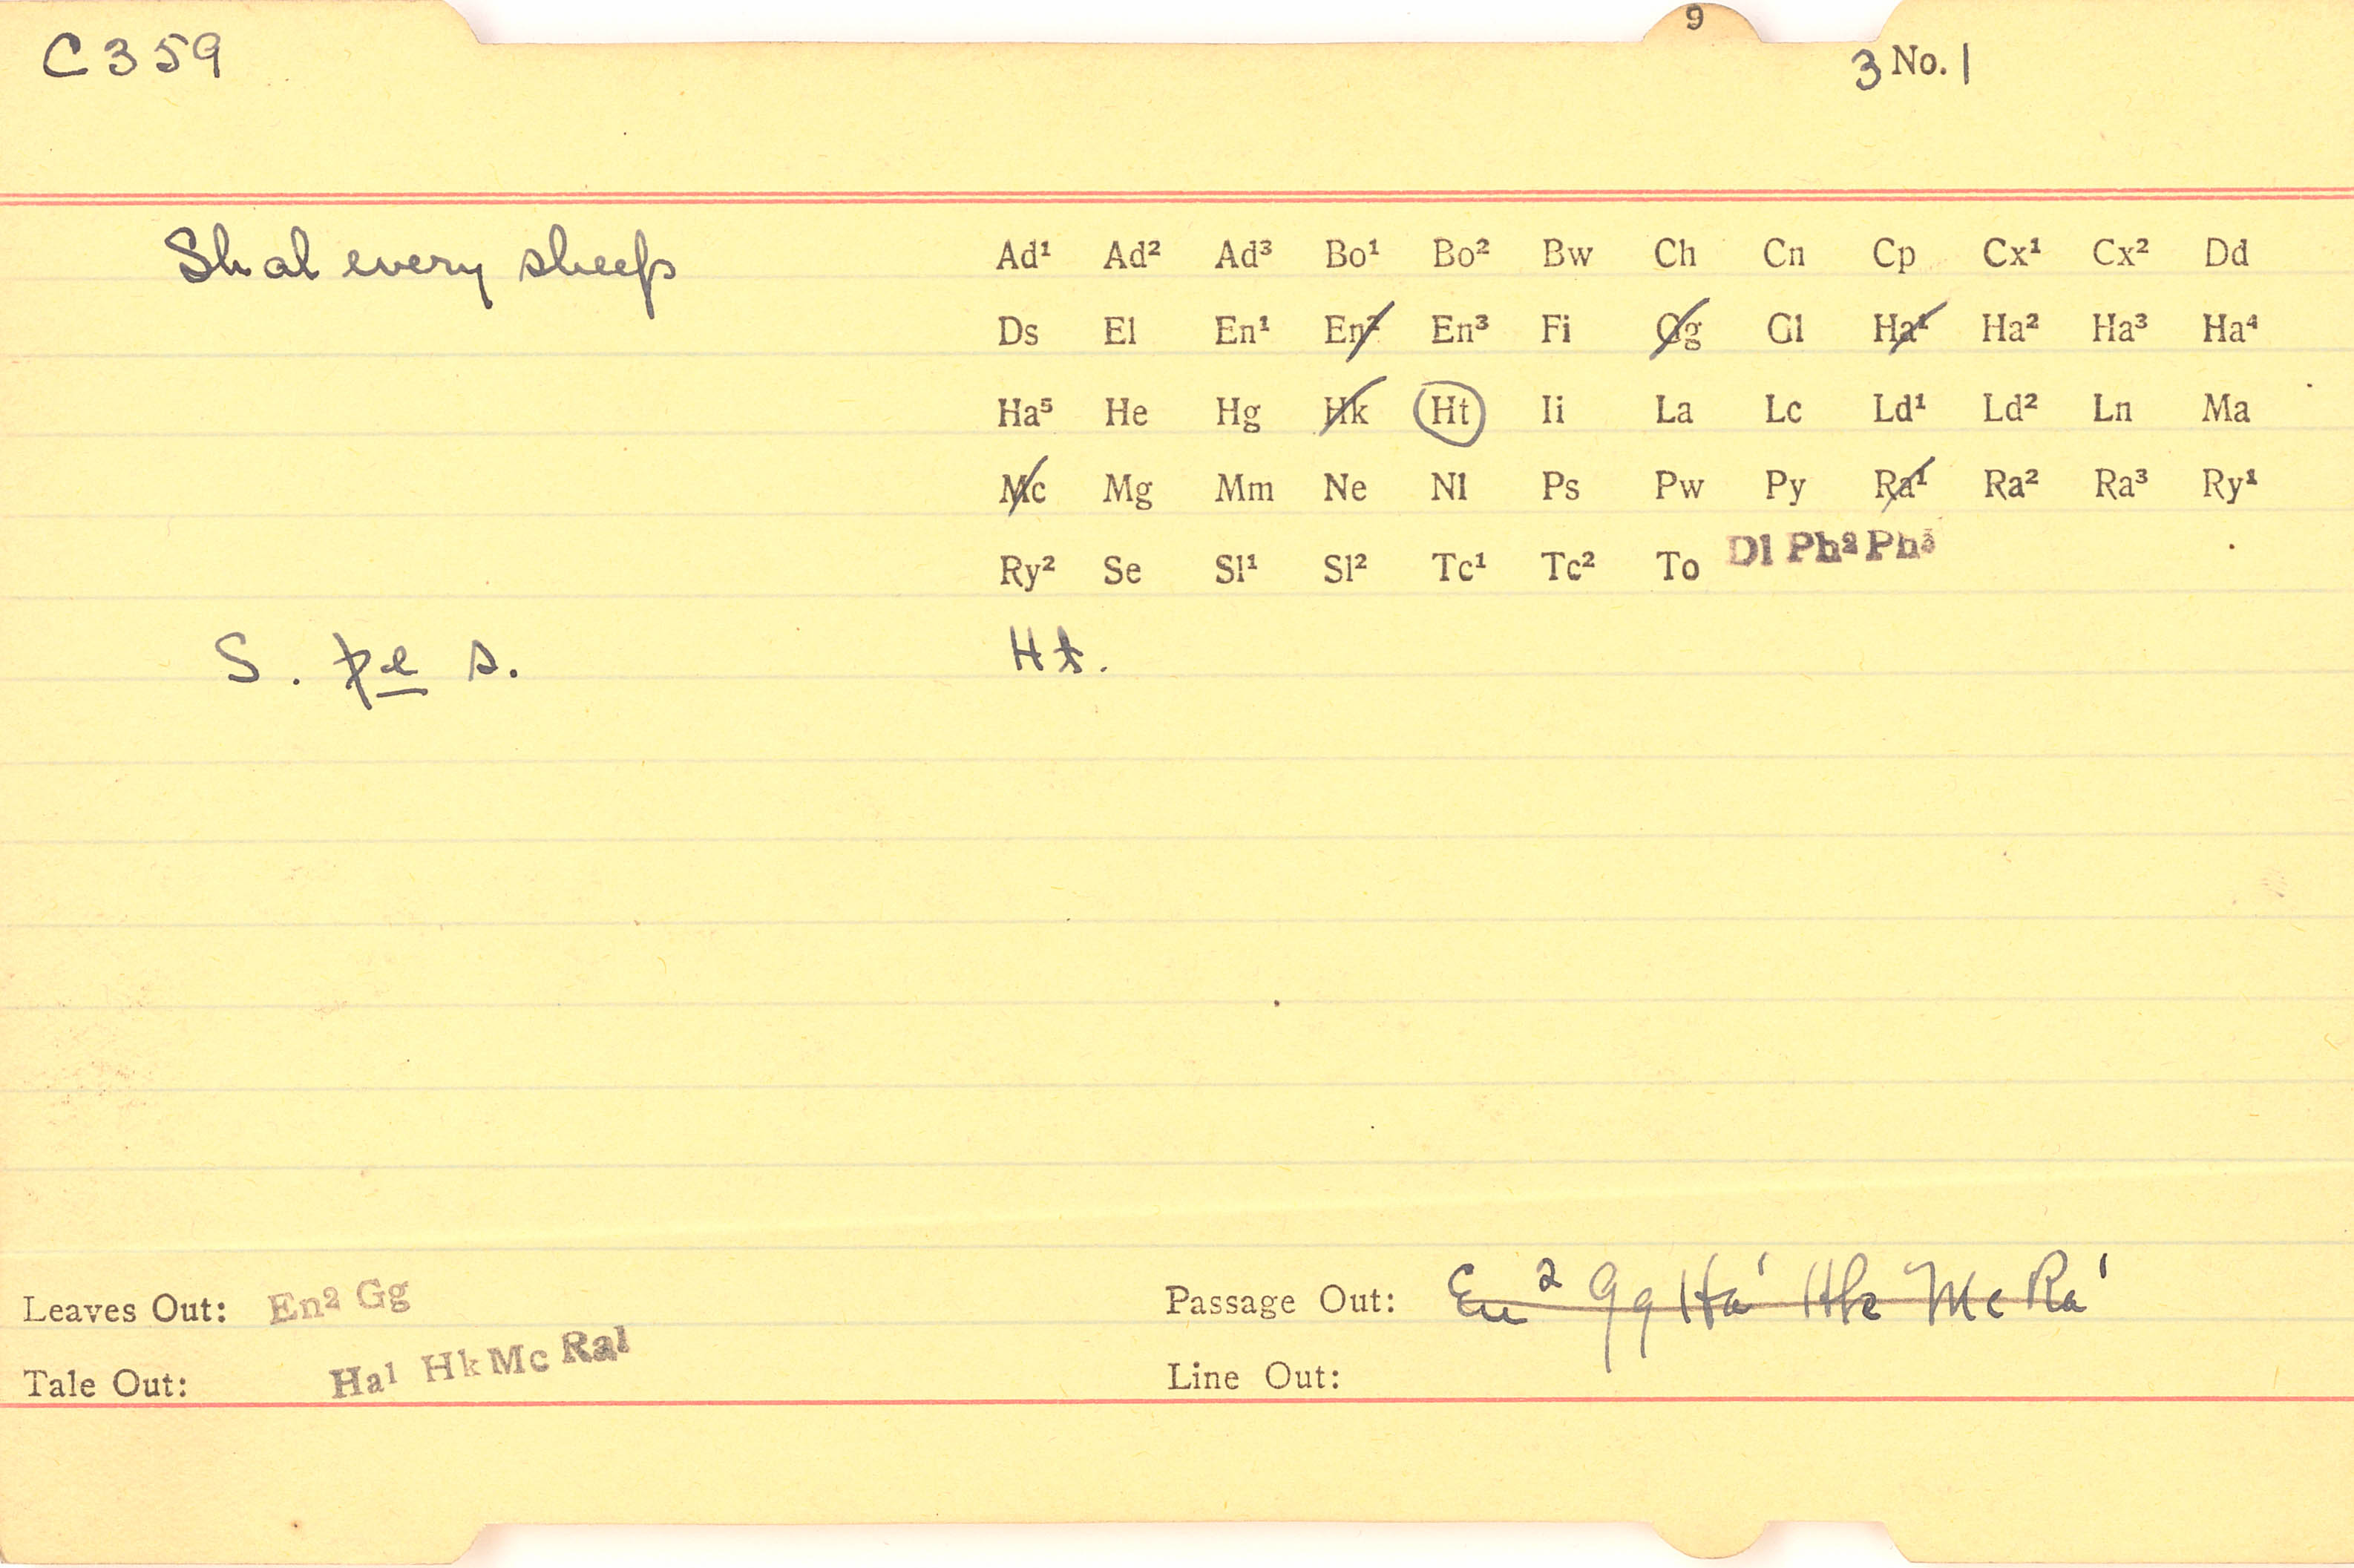 9
C 359
3 No. 1
Shal every sheep
Ad¹ Ad² Ad³ Bo¹ Bo² Bw Ch Cn Cp Cx¹ Cx² Dd
Ds El En¹ En² En³ Fi Gg Gl Ha¹ Ha² Ha³ Ha⁴
Ha⁵ He Hg Hk Ht Ii La Lc Ld¹ Ld² Ln Ma
Mc Mg Mm Ne Nl Ps Pw Py Ra¹ Ra² Ra³ Ry¹
Ry² Se Sl¹ Sl² Tc¹ Tc² To Dl Ph² Ph³
S. þe s. Ht.
Leaves Out: En² Gg
Passage Out: En² Gg Ha¹ Hk Mc Ra¹
Tale Out: Ha¹ Hk Mc Ra¹
Line Out: